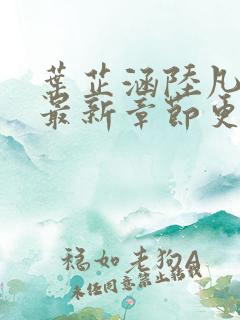 葉芷涵陸凡
最新章節更
福如老狗A
未经同意禁止转载